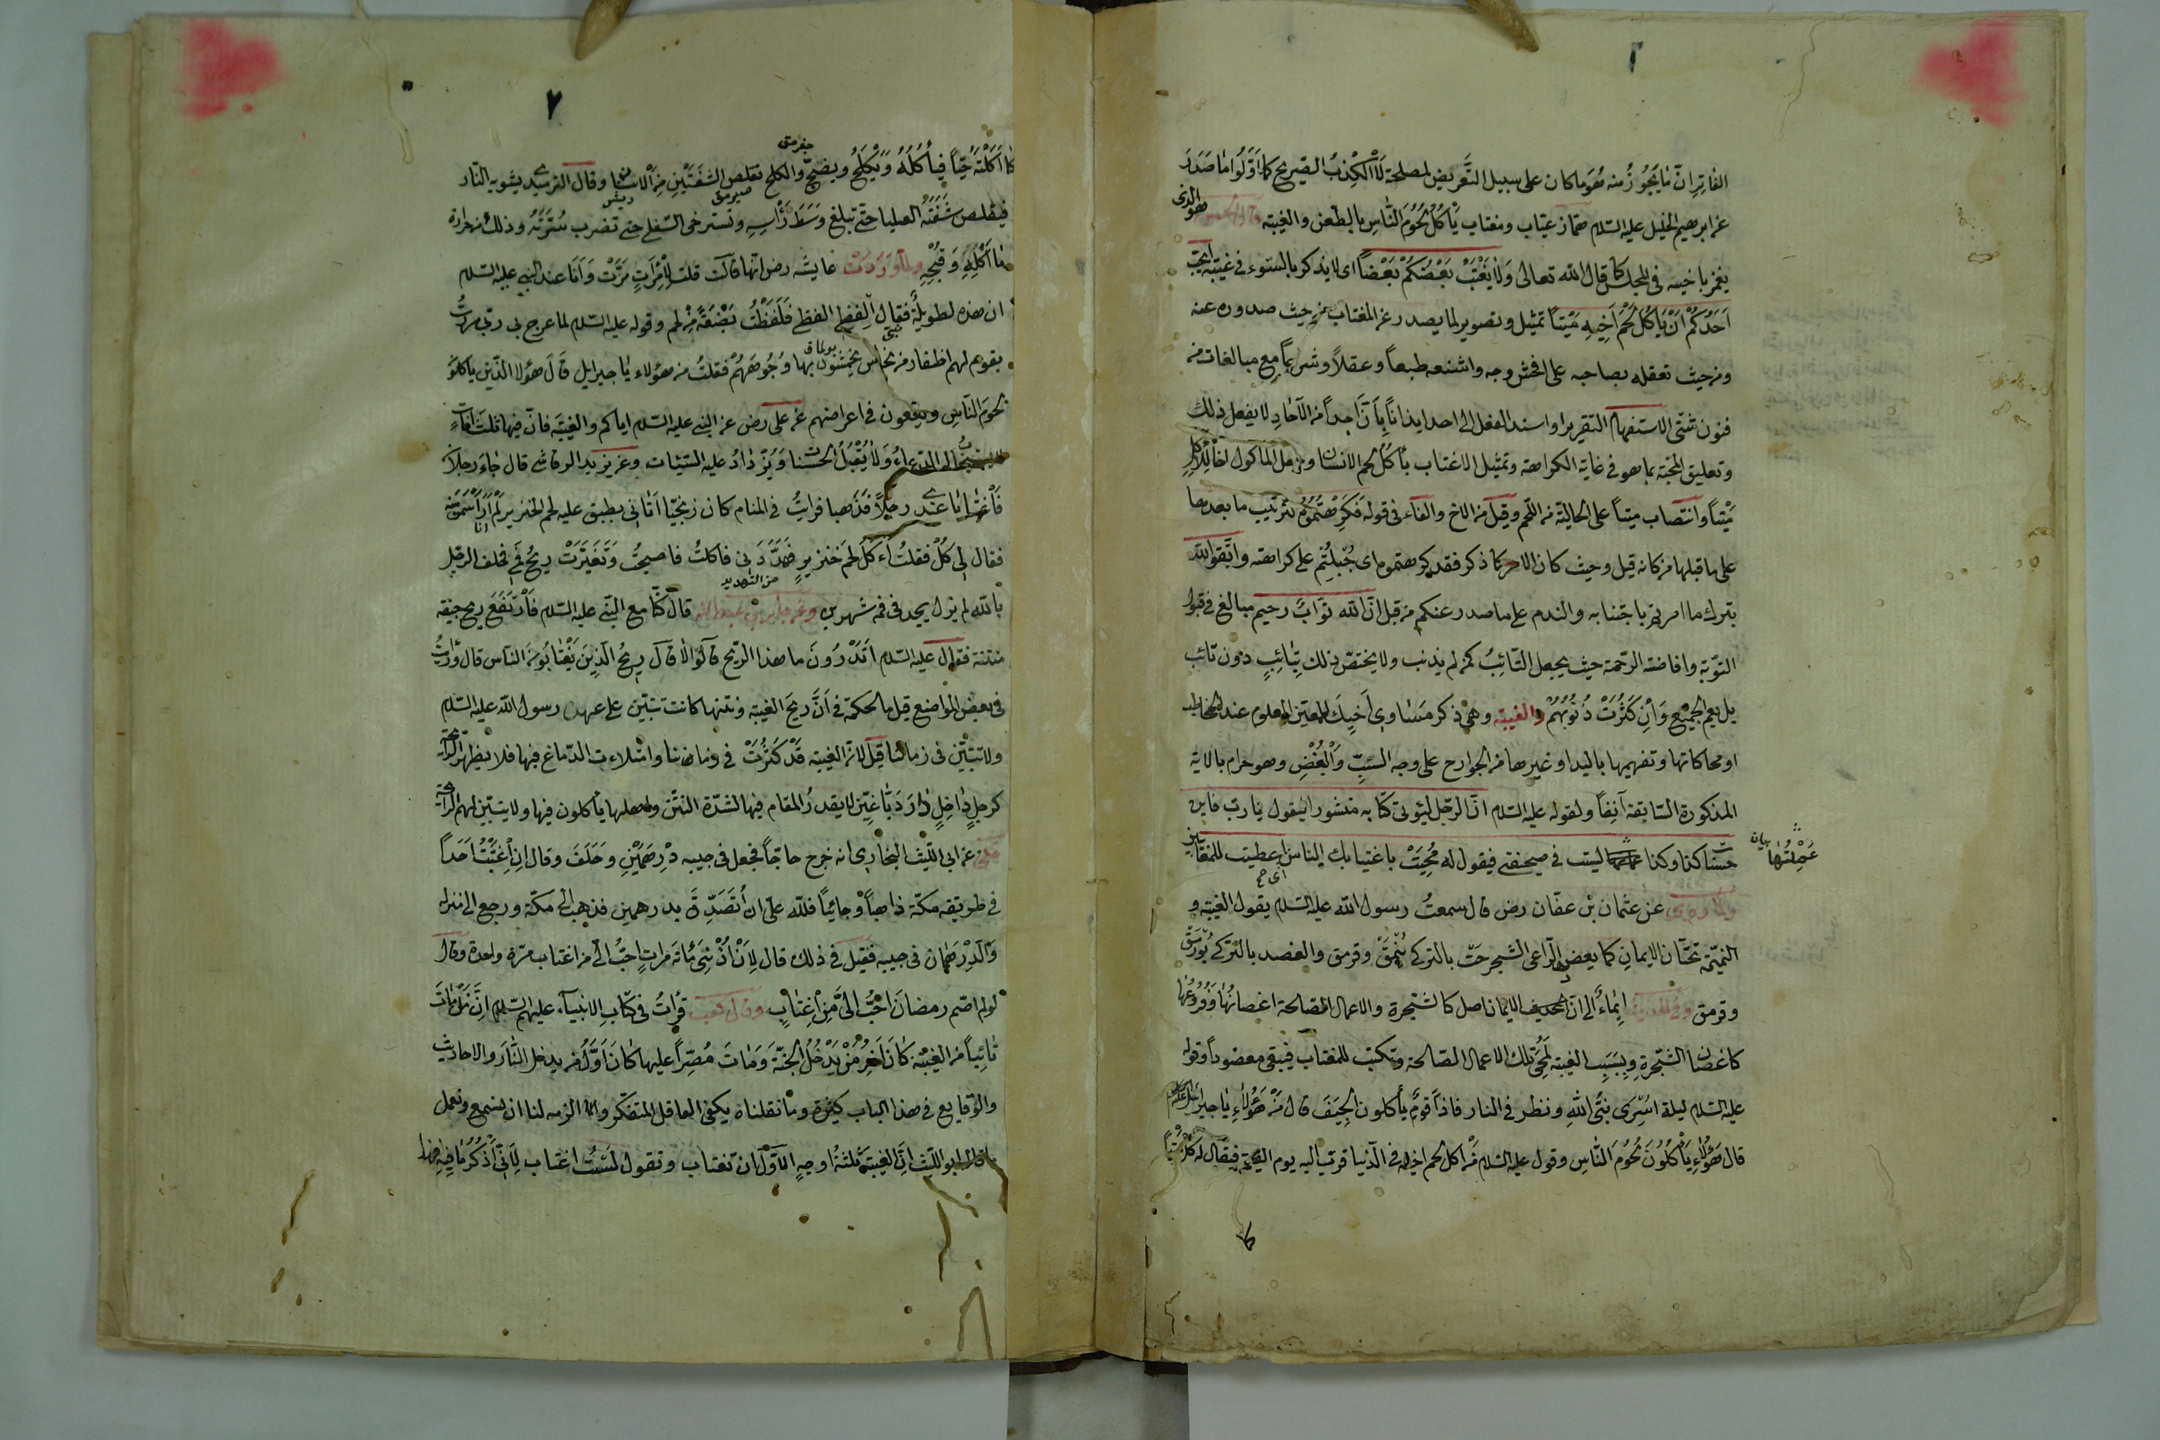 الفاتر ان ما يجوز منه هو ما كان على سبيل التعريض لمصلحة لا الكذب الصريح كما اولوا ما صدر
عن ابرهيم الخليل عليه السلام هماز عياب ومغتاب يأكل لحوم الناس بالطعن والغيبة وقال الحسن هو الذى
يغمز باخيه فى المجلس كما قال الله تعالى ولا يغتب بعضكم بعضا اى لا يذكر بالسوء فى غيبته ايحب
احدكم ان ياكل لحم اخيه ميتا تمثيل وتصوير لما يصدر عن المغتاب من حيث صدوره عنه
ومن حيث تعقله بصاحبه على افحش وجه واشنعه طبعا وعقلا وشرعا مع مبالغات من
فنون شتى الاستفهام التقرير واسناد الفعل الى احد ايذانا بان احدا من الآحاد لا يفعل ذلك
وتعليق المحبة بما هو فى غاية الكراهة وتمثيل الاغتياب بأكل لحم الانسان وجعل المأكول اخا للآكل
ميتا وانتصاب ميتا على الحالية من اللحم وقيل من الاخ والفاء فى قوله فكرهتموه لترتيب ما بعدها
على ما قبلها من كانه قيل وحيث كان الامر كما ذكر فقد كرهتموه اى جبلتم على كراهته واتقوا الله
بترك ما امرتم باجتنابه والندم على ما صدر عنكم من قبل ان الله تواب رحيم مبالغ فى قبول
التوبة وافاضة الرحمة حيث يجعل التائب كمن لم يذنب ولا يختص ذلك بتائب دون تائب
بل يعم الجميع وان كثرت ذنوبهم والغيبة وهى ذكر مساوى اخيك المعين المعلوم عند المخاطب
او محاكاتها وتفهيمها باليد او غيرها من الجوارح على وجه السب والبغض وهو حرام بالاية
المذكورة السابقة آنفا ولقوله عليه السلام ان الرجل ليؤتى كتابه منشورا فيقول يا رب فاين
حسنات كذا وكذا ليست فى صحيفتى فيقول له محيت باغتيابك الناس اى اعطيت للمغتابين
عملتها بيان
ولما روى عن عثمان بن عفان رض قال سمعت رسول الله عليه السلام يقول الغيبة و
النميمة تحتان الايمان كما يعضد الراعى الشجر حت بالتركى يونمق وقرمق والعضد بالتركى بودمق
وقرمق وفى الحديث ايماء الى ان الايمان اصل كالشجرة والاعمال الصالحة اغصانها وفروعها
كاغصان الشجرة وبسبب الغيبة تمحى تلك الاعمال الصالحة وتكتب للمغتاب فيبقى معضودا وقوله
عليه السلام ليلة اسرى بنبى الله ونظر فى النار فاذا قوم يأكلون الجيف قال من هؤلاء يا جبرائيل
قال هؤلاء يأكلون لحوم الناس وقول عليه السلام من اكل لحم اخيه فى الدنيا قرب اليه يوم القيمة فيقال له كله ميتا
كما
٢
كما اكلته حيا فيأكله ويكلح ويضج والكلح تقلص الشفتين من الاسنان وقال الترمذى يشويه النار
جغرمق
فيقلص شفته العليا حتى تبلغ وسط رأسه وتسترخى السفلى حتى تضرب سرته وذلك من حرارة
ما اكله وقبحه ولما وردت عايشه رض انها قالت قلت لامرأة مرت وانا عند النبى عليه السلام
ان هذه لطويلة فقال الفظى الفظى فلفظت بضعة من لحم وقوله عليه السلام لما عرج بى ربى مررت
بقوم لهم اظفار من نحاس يخمشون بها وجوههم فقلت من هؤلاء يا جبرايل قال هؤلا الذين ياكلو
لحوم الناس ويقعون فى اعراضهم عن على رض عن النبى عليه السلام اياكم والغيبة فان فيها ثلث آفات
لا يستجاب له الدعاء ولا يقبل الحسنا ويزداد عليه السيئات وعن يزيد الرقاشى قال جاء رجلا
فاغتابا عندى رجلا فذهبا فرايت فى المنام كان زنجيا اتانى بطبق عليه لحم الخنزير لم ار اسمن منه
فقال لى كل فقلت أءكل لحم خنزير فهددنى فاكلت فاصبحت وتغيرت ريح فمى فحلف الرجل
من التهديد
بالله لم يزل يجد فى فمه شهرين وعن جابر بن عبد الله قال كنا مع النبى عليه السلام فارتفع ريح جيفة
منتنة فقال عليه السلام اتدرون ما هذا الريح قالوا لا قال ريح الذين يغتابون الناس قال ورايت
فى بعض المواضع قيل ما الحكمة فى ان ريح الغيبة ونتنها كانت تتبين على عهد رسول الله عليه السلام
ولا تتبين فى زماننا قيل لان الغيبة قد كثرت فى زماننا وامتلاءت الدماغ فيها فلا يظهر الرائحة
كرجل داخل دار دباغين لا يقدر المقام فيها لشدة النتن واهلها يأكلون فيها ولا يتبين لهم الرائحة
حكى عن ابى الليث البخارى انه خرج حاجا فجعل فى جيبه درهمين وحلف وقال ان اغتبت احدا
فى طريق مكة ذاهبا وجائيا فلله على ان اتصدق بدرهمين فذهب الى مكة ورجع الى منزله
والدرهمان فى جيبه فقيل فى ذلك قال لان ازنى مائة مرات احب الى من اغتاب مرة واحدة وقال
لو لم اصم رمضان احب الى من اغتاب وقال كعب قرأت فى كتاب الانبياء عليهم السلام ان من مات
تائبا من الغيبة كان اخر من يدخل الجنة ومات مصرا عليها كان اول من يدخل النار والاحاديث
والوقايع فى هذا الباب كثيرة وما نقلناه يكفى العاقل المتفكر والا الزمه لنا ان يسمع ويعمل
قال ابو الليث ان الغيبة ثلثة اوجه الاول ان تغتاب وتقول لست اغتاب لانى اذكر ما فيه فهذا